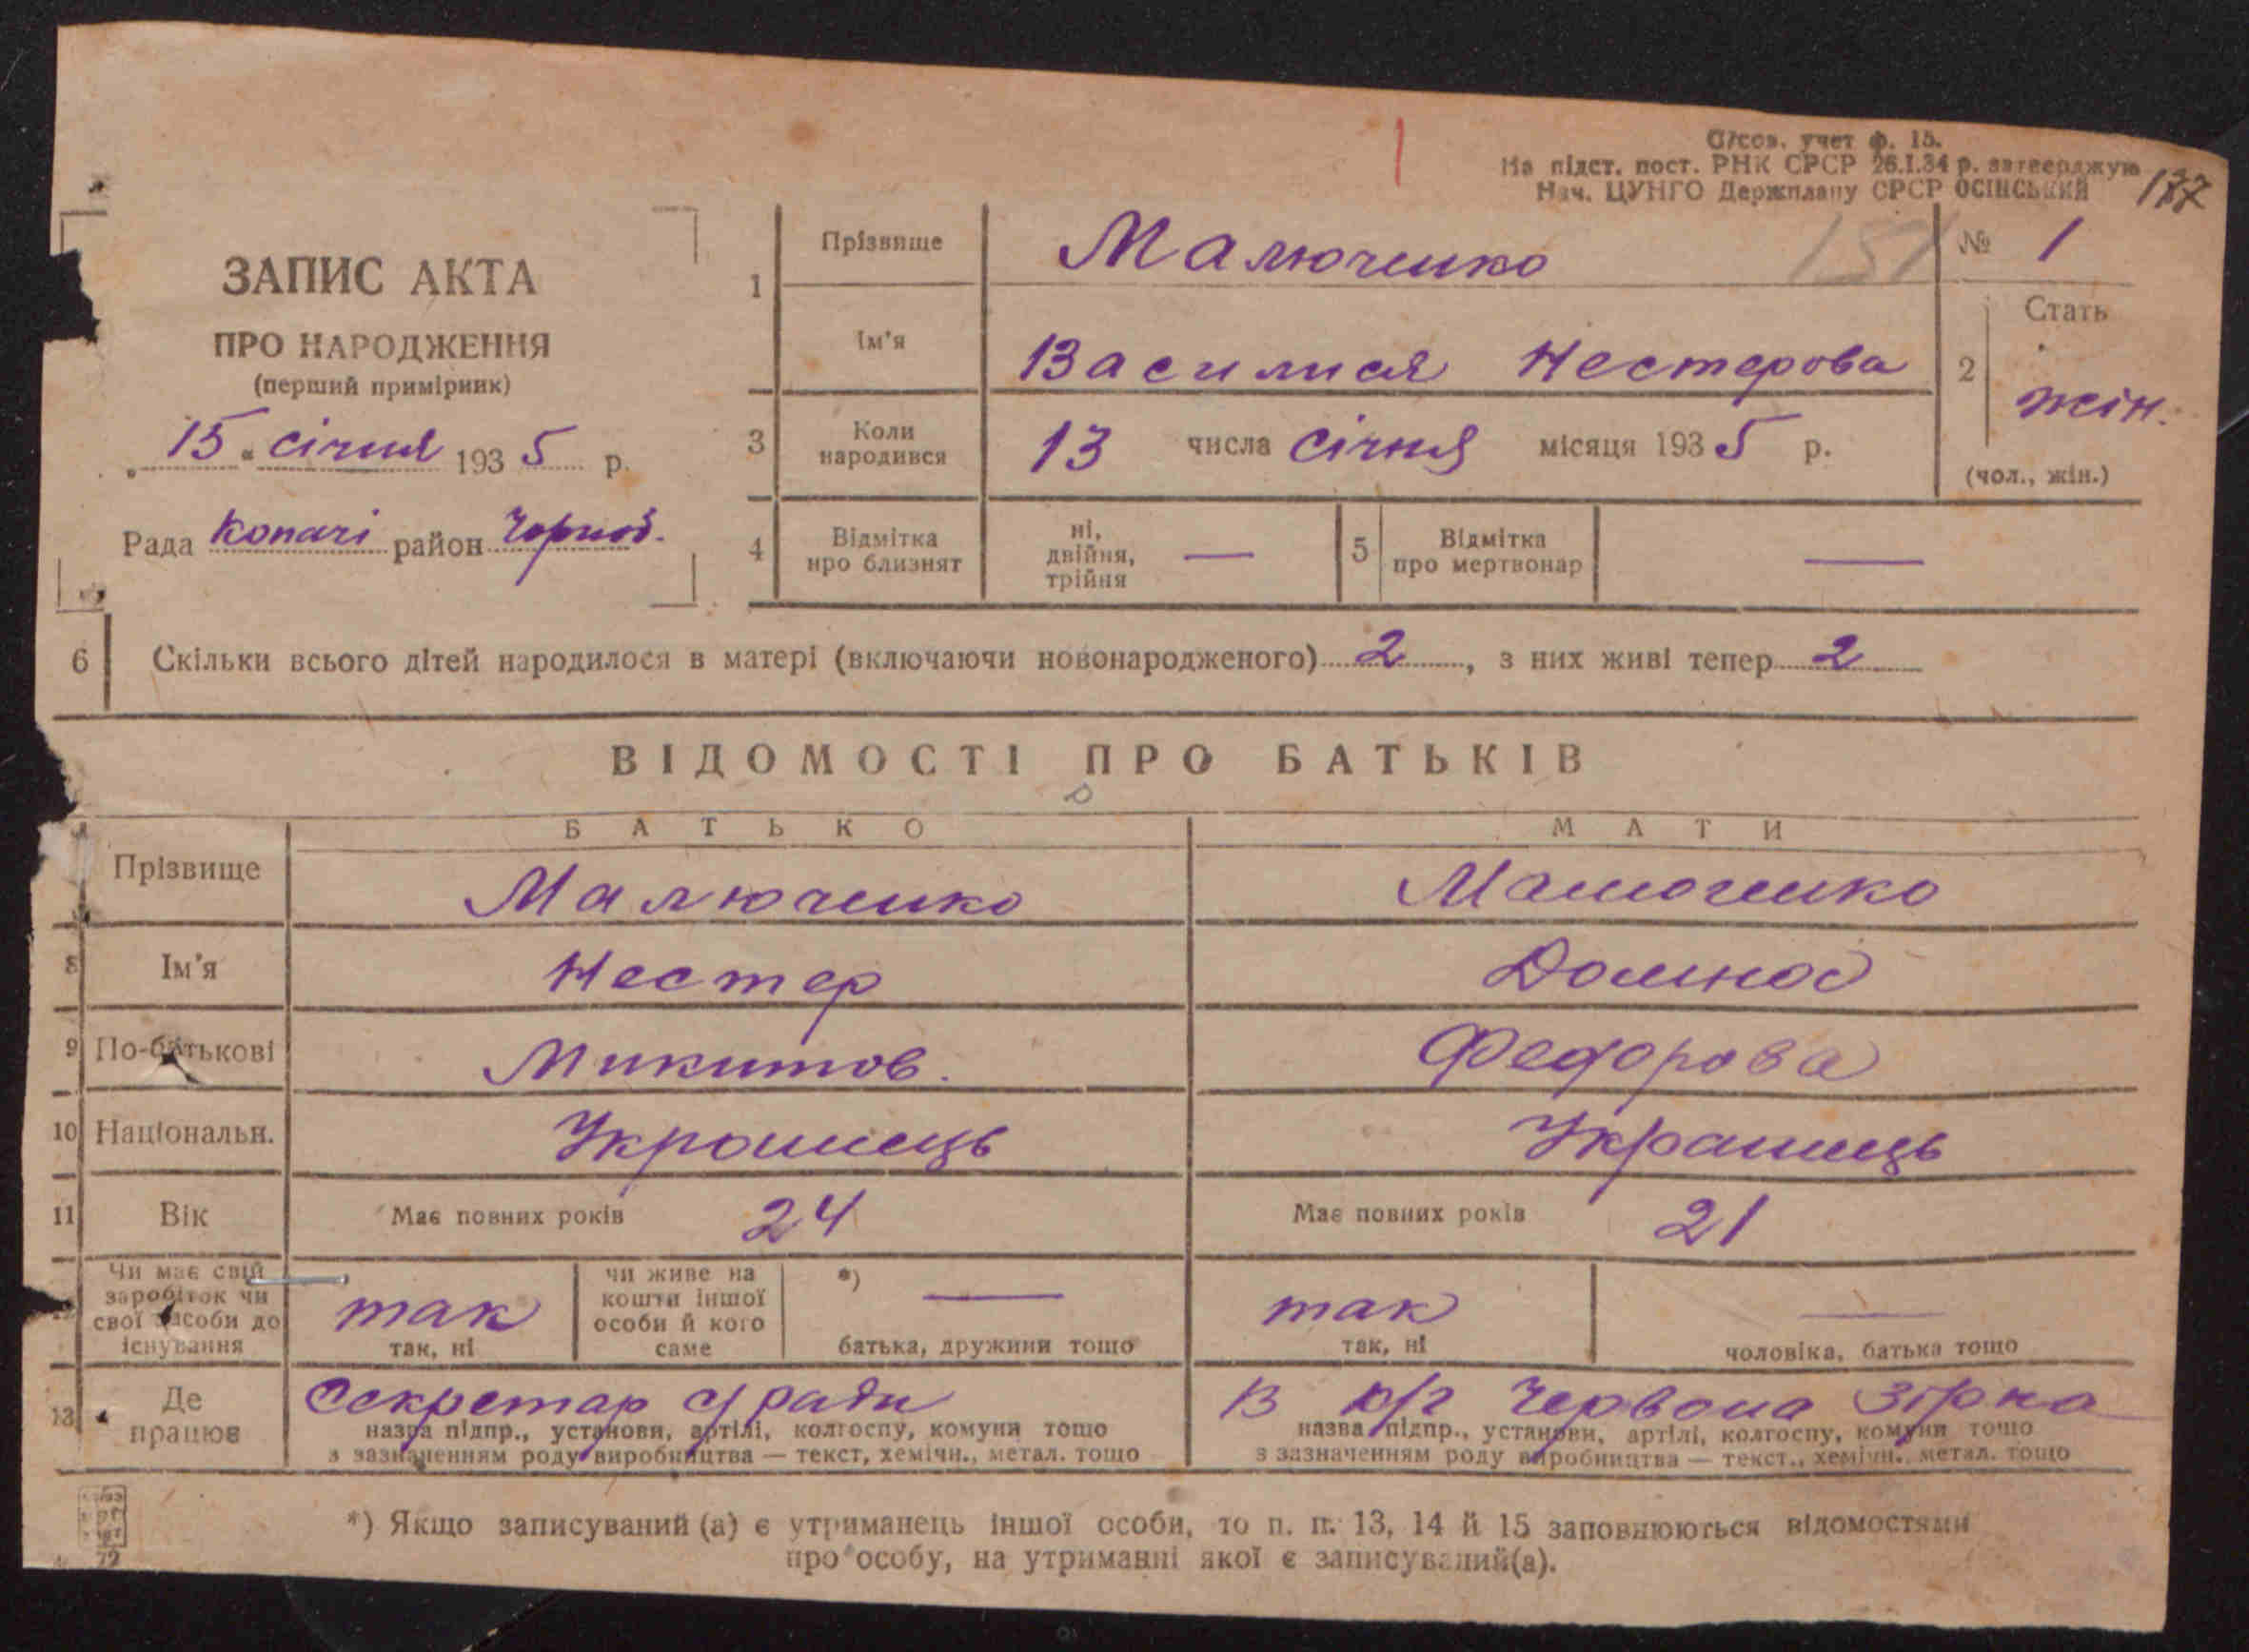 С/сов. учет ф. 15.
На підст. пост. РНК СРСР 26.I.34 р. затверджую
Нач. ЦУНГО Держплану СРСР ОСІНСЬКИЙ
177
ЗАПИС АКТА
ПРО НАРОДЖЕННЯ
(перший примірник)
„ 15 “ січня 1935 р.
Рада Копачі район Чорноб.
1 Прізвище Малюченко 151 № 1
Ім'я Василися Нестерова
2 Стать жін.
(чол., жін.)
3 Коли народився 13 числа січня місяця 1935 р.
4 Відмітка про близнят ні, двійня, трійня —
5 Відмітка про мертвонар —
6 Скільки всього дітей народилося в матері (включаючи новонародженого) 2, з них живі тепер 2
ВІДОМОСТІ ПРО БАТЬКІВ
БАТЬКО МАТИ
Прізвище Малюченко Малюченко
8 Ім'я Нестер Домна
9 По-батькові Микитов. Федорова
10 Національн. Українець Українець
11 Вік Має повних років 24 Має повних років 21
Чи має свій заробіток чи свої засоби до існування так чи живе на кошти іншої особи й кого саме *) — так —
так, ні батька, дружини тощо так, ні чоловіка, батька тощо
13 Де працює Секретар с/ради В к/г Червона Зірка
назва підпр., установи, артілі, колгоспу, комуни тощо назва підпр., установи, артілі, колгоспу, комуни тощо
з зазначенням роду виробництва — текст, хемічн., метал. тощо з зазначенням роду виробництва — текст., хемічн., метал. тощо
*) Якщо записуваний (а) є утриманець іншої особи, то п. п. 13, 14 й 15 заповнюються відомостями
про особу, на утриманні якої є записуваний(а).